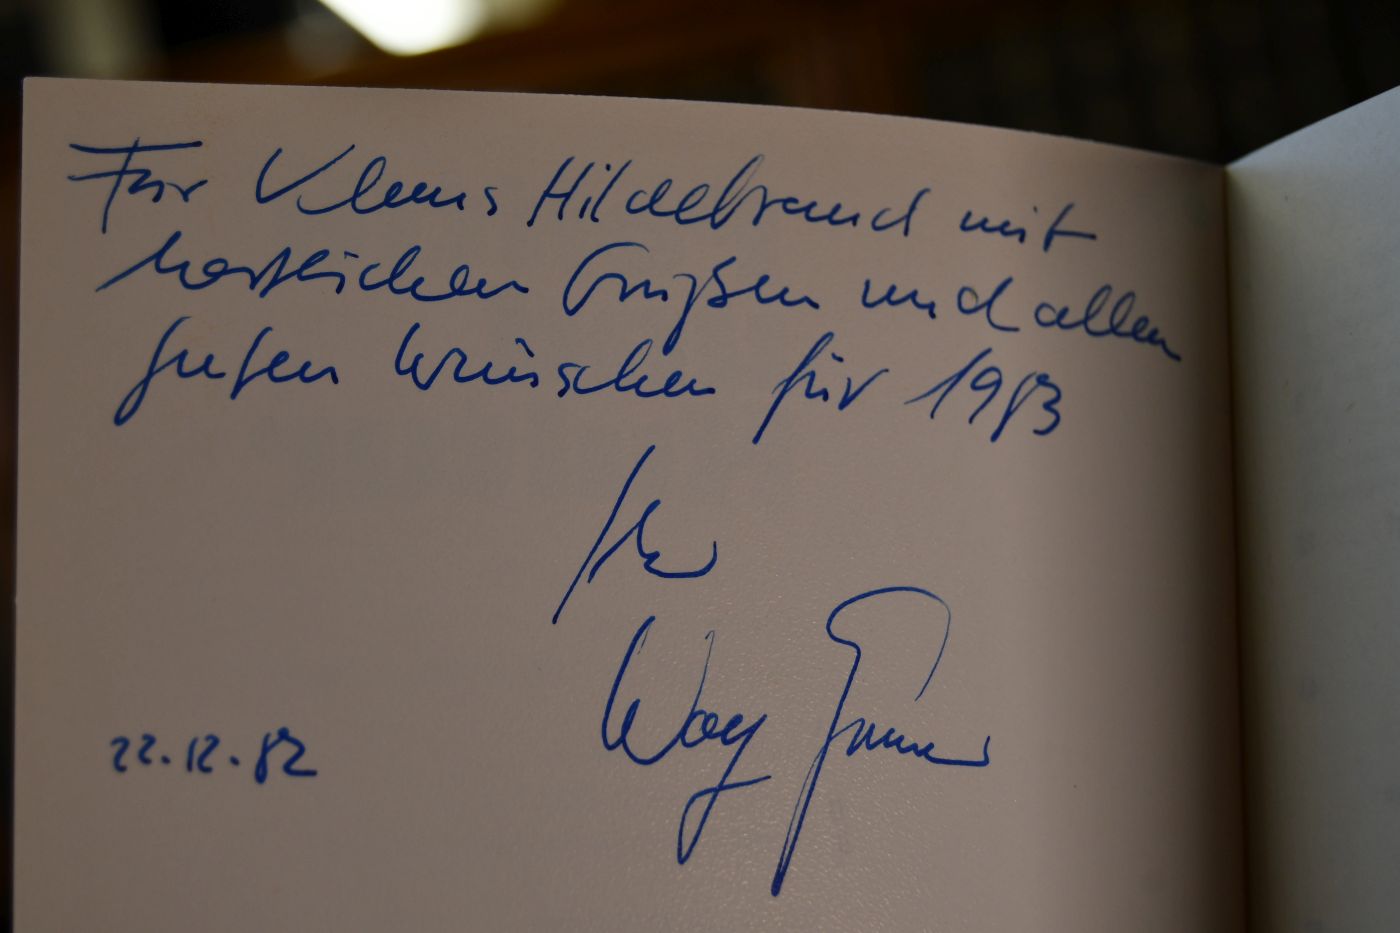 Für Klaus Hildebrand mit
herzlichen Grüßen und allen
guten Wünschen für 1983
Ihr
22.12.82